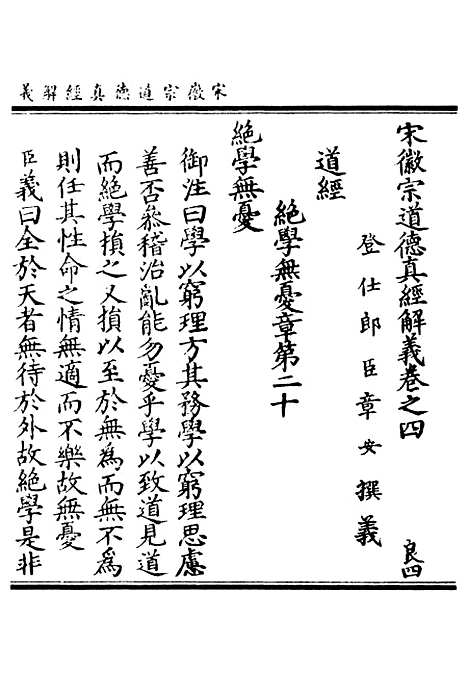 宋徽宗道德真經解義
宋徽宗道德真經解義卷之四 良四
登仕郎臣章安撰義
道經
絶學無憂章第二十
絶學無憂
御注曰學以窮理方其務學以窮理思慮
善否叅稽治亂能勿憂乎學以致道見道
而絶學損之又損以至於無為而無不為
則任其性命之情無適而不樂故無憂
臣義曰全於天者無待於外故絶學是非